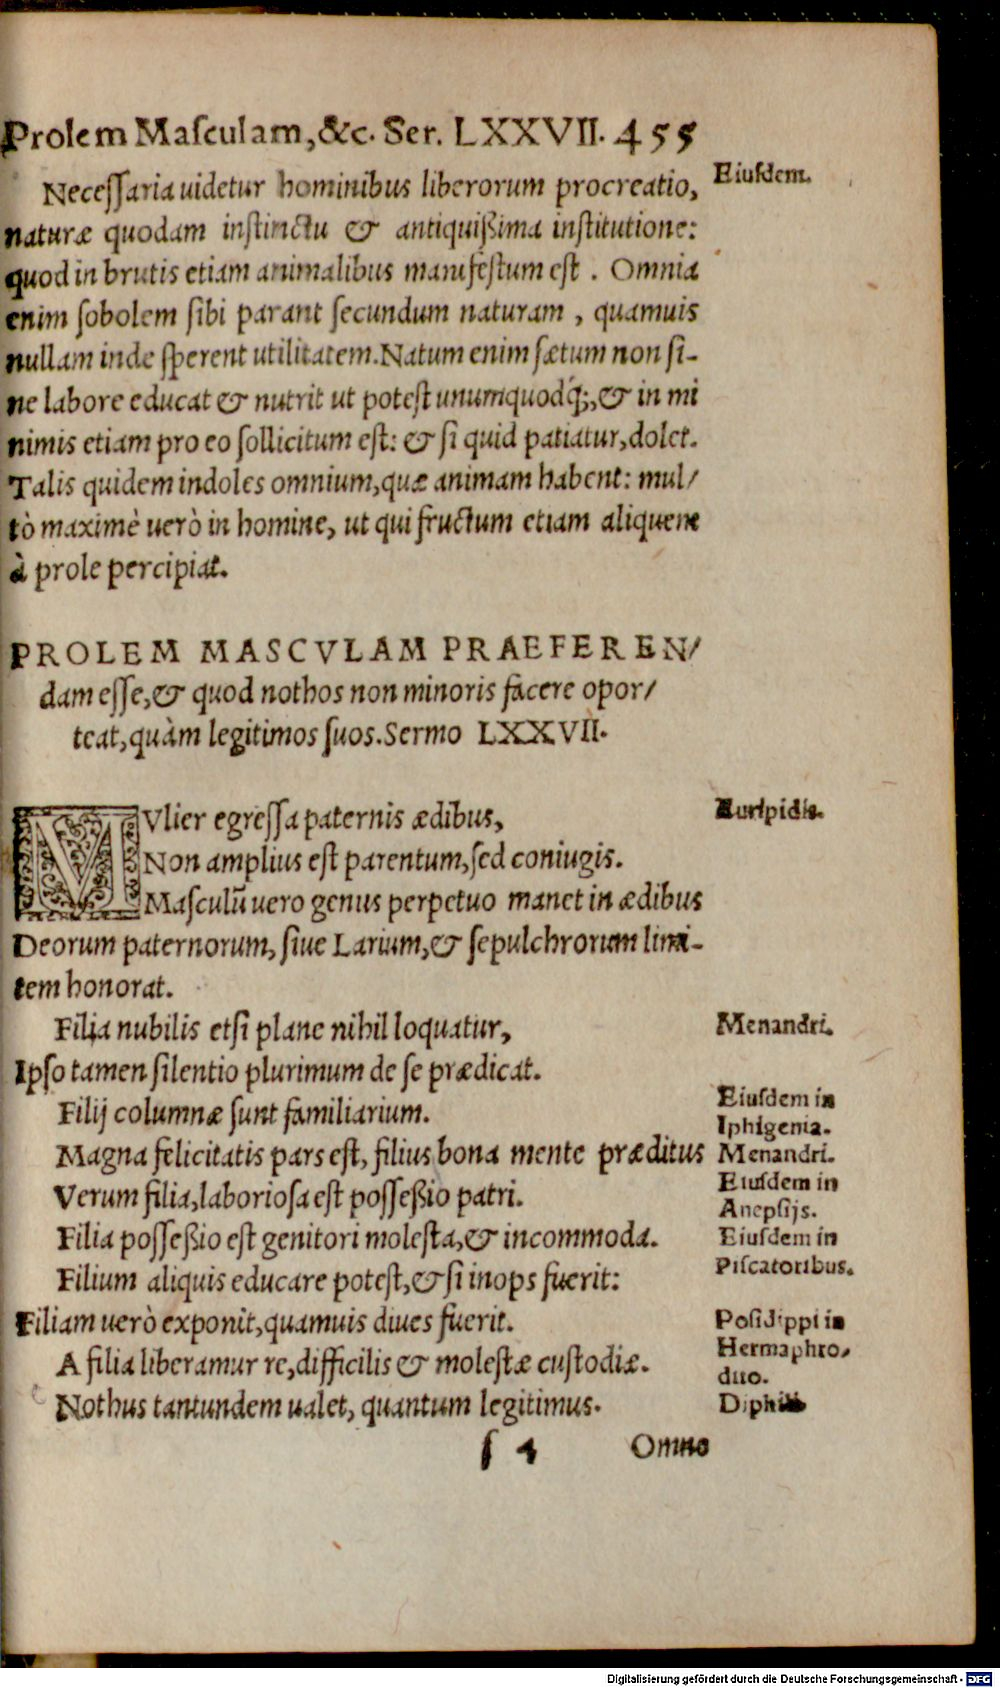 Prolem Masculam, &c. Ser. LXXVII. 455
Necessaria uidetur hominibus liberorum procreatio,
Eiusdem.
naturæ quodam instinctu & antiquißima institutione:
quod in brutis etiam animalibus manifestum est . Omnia
enim sobolem sibi parant secundum naturam , quamuis
nullam inde sperent utilitatem. Natum enim fœtum non si-
ne labore educat & nutrit ut potest unumquodq́;, & in mi
nimis etiam pro eo sollicitum est: & si quid patiatur, dolet.
Talis quidem indoles omnium, quæ animam habent: mul/
tò maximè uerò in homine, ut qui fructum etiam aliquem
à prole percipiat.
PROLEM MASCVLAM PRAEFEREN/
dam esse, & quod nothos non minoris facere opor/
teat, quàm legitimos suos. Sermo LXXVII.
MVlier egressa paternis ædibus,
Euripidis.
Non amplius est parentum, sed coniugis.
Masculũ uero genus perpetuo manet in ædibus
Deorum paternorum, siue Larium, & sepulchrorum limi-
tem honorat.
Filia nubilis etsi plane nihil loquatur,
Menandri.
Ipso tamen silentio plurimum de se prædicat.
Filij columnæ sunt familiarium.
Eiusdem in
Iphigenia.
Magna felicitatis pars est, filius bona mente præditus
Menandri.
Verum filia, laboriosa est posseßio patri.
Eiusdem in
Anepsijs.
Filia posseßio est genitori molesta, & incommoda.
Eiusdem in
Piscatoribus.
Filium aliquis educare potest, & si inops fuerit:
Filiam uerò exponit, quamuis diues fuerit.
Posidippi in
Hermaphro/
dito.
A filia liberamur re, difficilis & molestæ custodiæ.
Nothus tantundem ualet, quantum legitimus.
Diphili
s 4 Omne
Digitalisierung gefördert durch die Deutsche Forschungsgemeinschaft - DFG